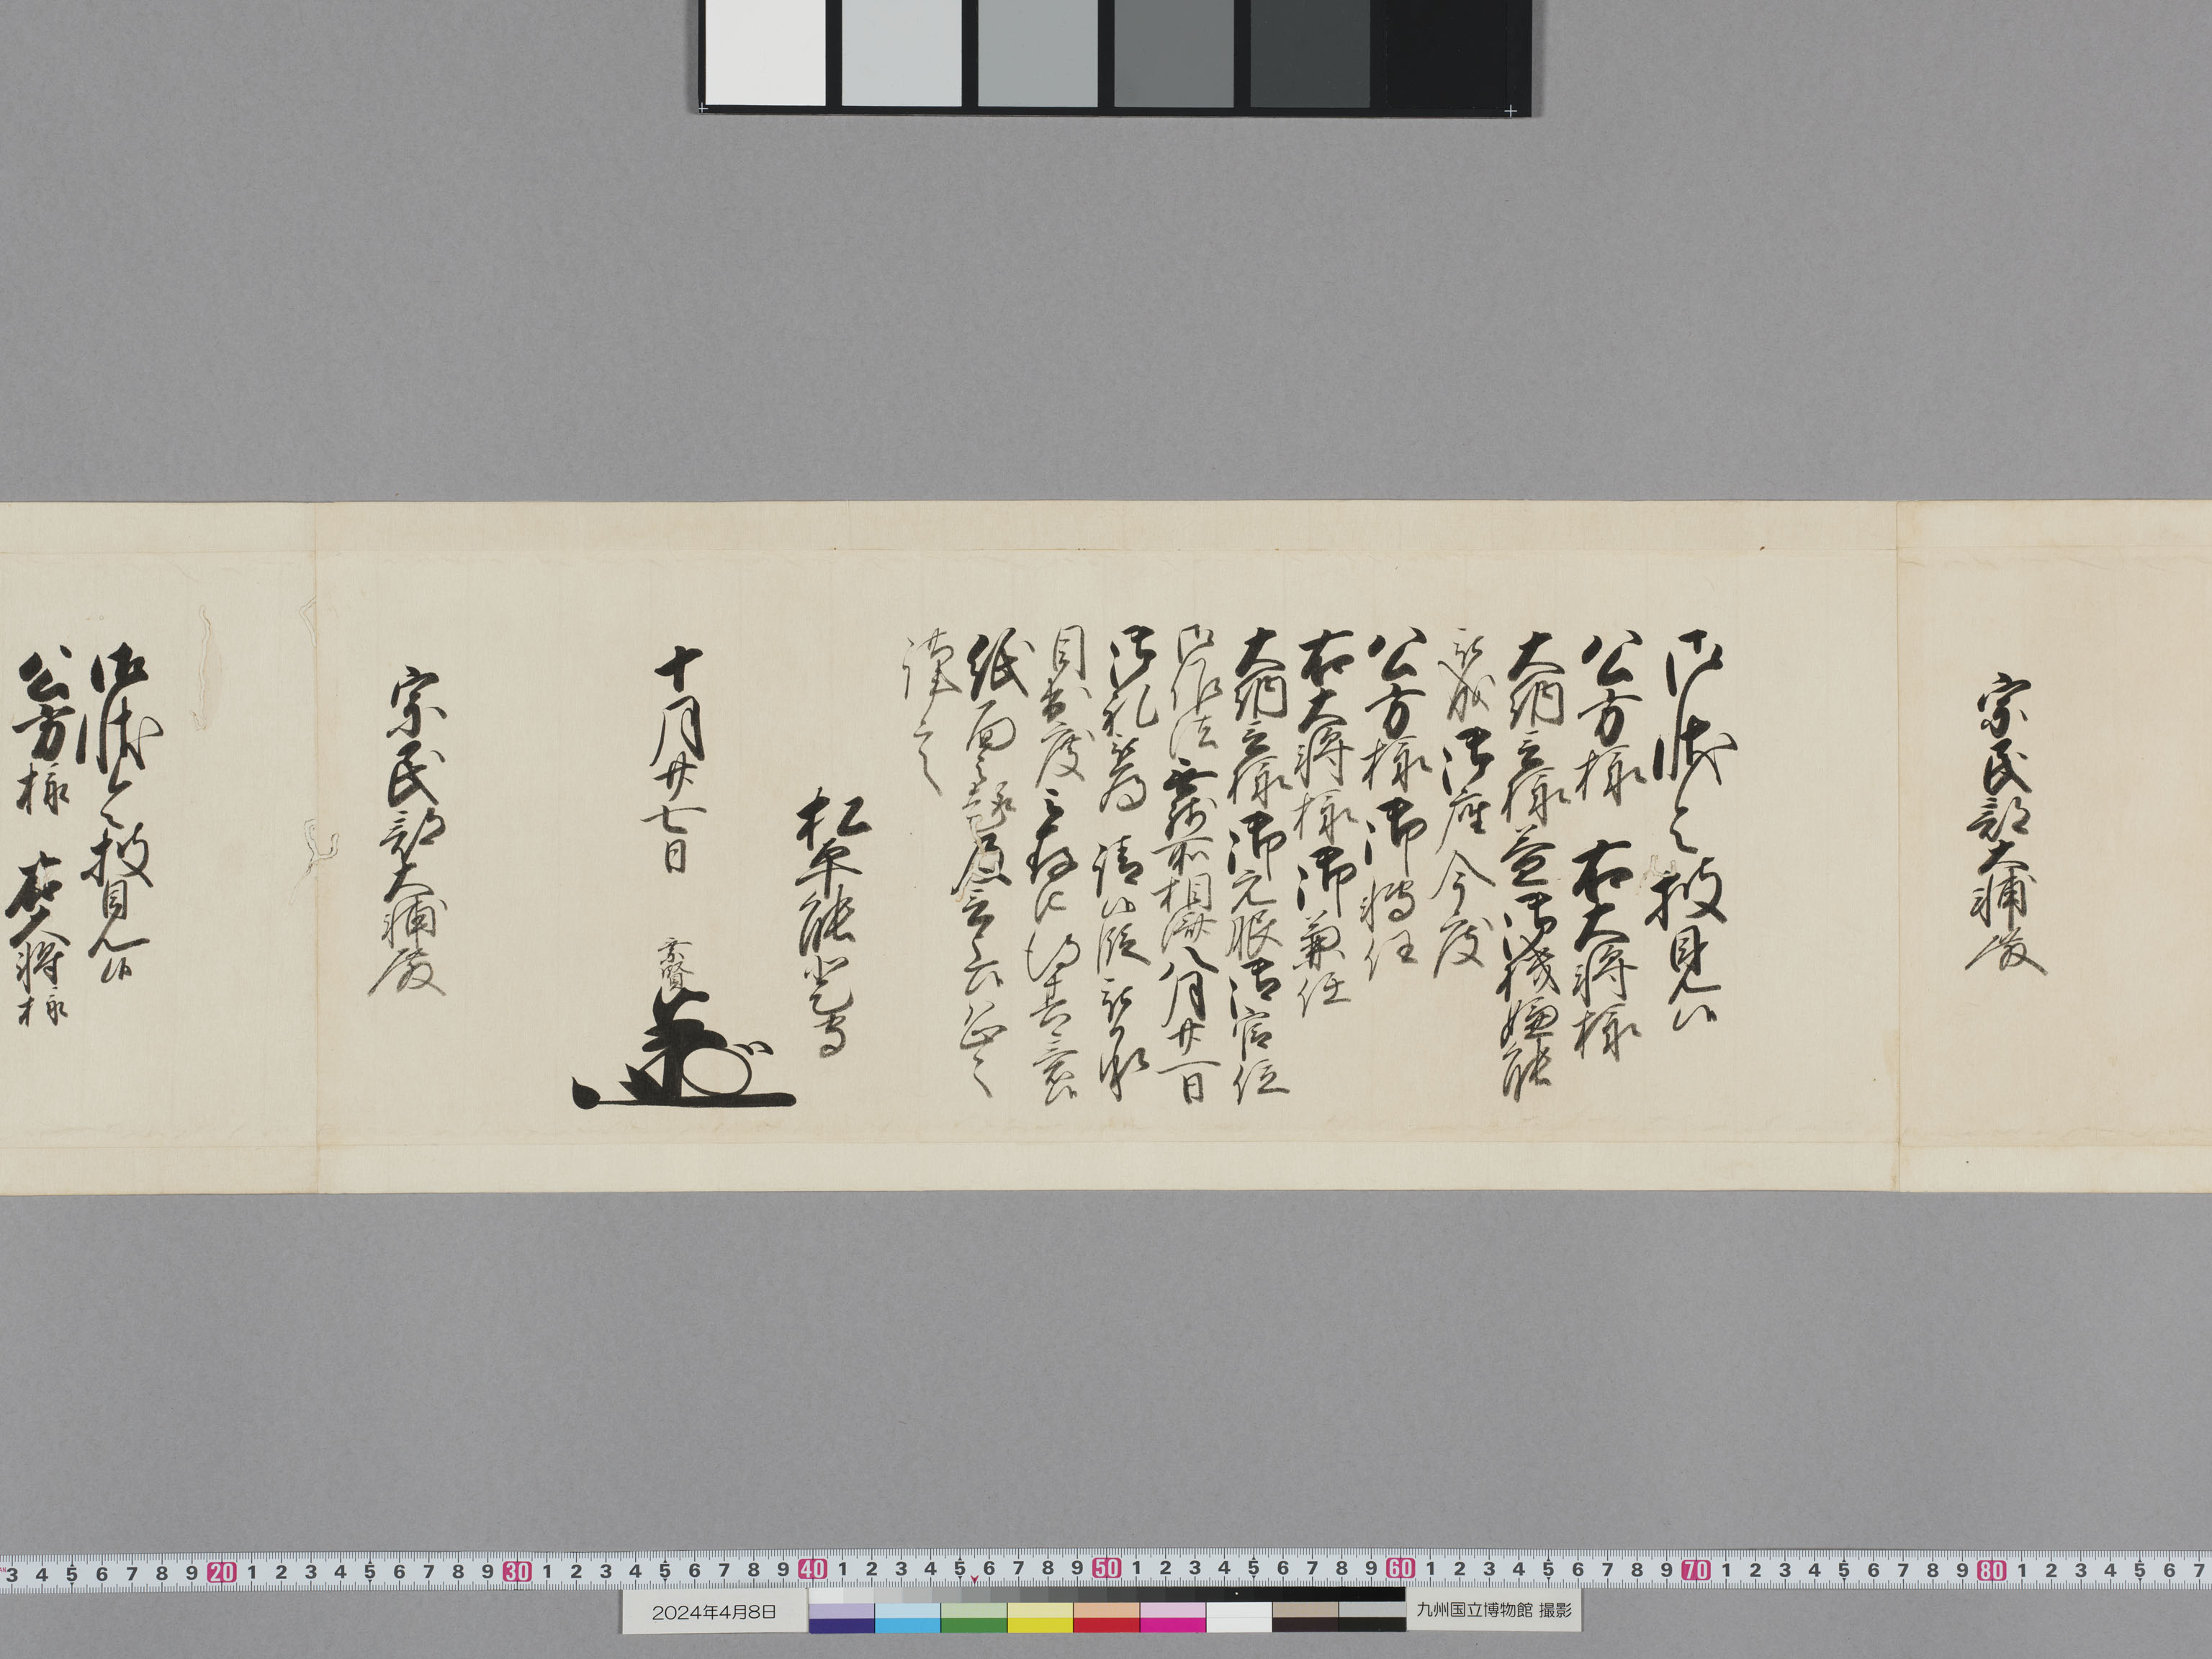 宗民部大輔殿
御状令披見候
公方様 右大将様
大納言様益御機嫌能
被成御座今度
公方様御転任
右大将様御兼任
大納言様御元服御官位
御作法無所相済八月廿一日
御礼為請候段被承
目出度之旨得其意候
紙面之趣及言上候恐々
謹言
松平能登守
十月廿七日 乗賢
宗民部大輔殿
御状令披見候
公方様 右大将様
3 4 5 6 7 8 9 20 1 2 3 4 5 6 7 8 9 30 1 2 3 4 5 6 7 8 9 40 1 2 3 4 5 6 7 8 9 50 1 2 3 4 5 6 7 8 9 60 1 2 3 4 5 6 7 8 9 70 1 2 3 4 5 6 7 8 9 80 1 2 3 4 5 6 7
2024年4月8日
九州国立博物館 撮影